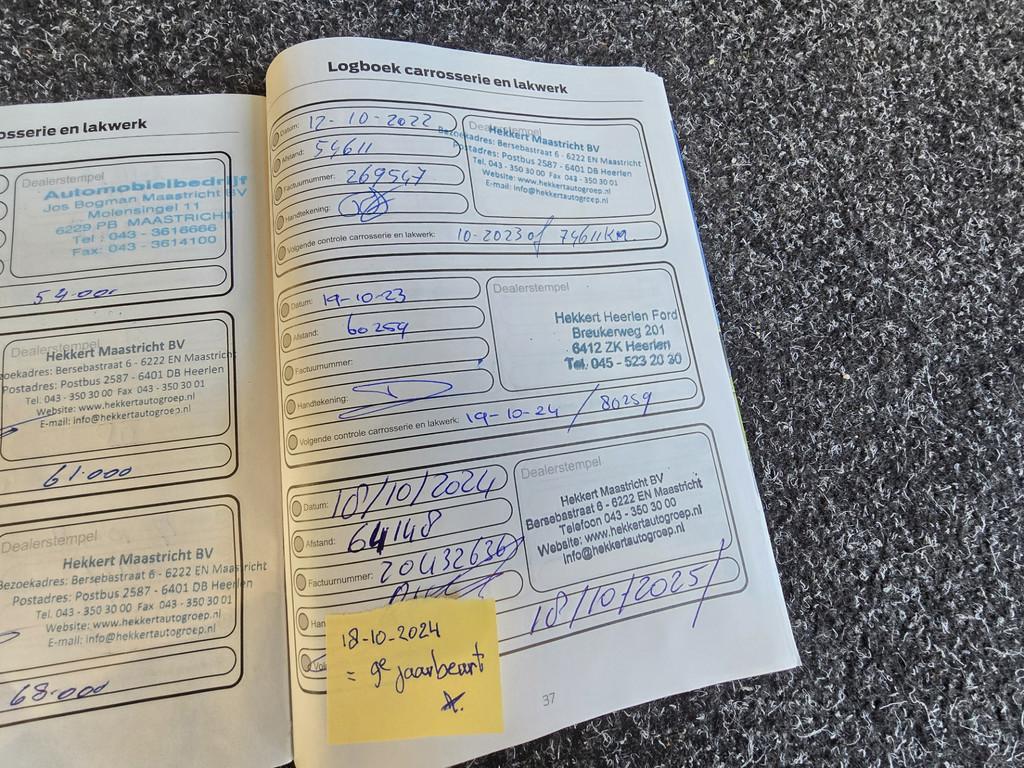 osserie en lakwerk
Dealerstempel
Automobielbedrijf
Jos Bogman Maastricht BV
Molensingel 11
6229 PB MAASTRICHT
Tel : 043 - 3616666
Fax: 043 - 3614100
54.000
Dealerstempel
Hekkert Maastricht BV
zoekadres: Bersebastraat 6 - 6222 EN Maastricht
Postadres: Postbus 2587 - 6401 DB Heerlen
Tel. 043 - 350 30 00 Fax 043 - 350 30 01
Website: www.hekkertautogroep.nl
E-mail: info@hekkertautogroep.nl
61.000
Dealerstempel
Hekkert Maastricht BV
Bezoekadres: Bersebastraat 6 - 6222 EN Maastricht
Postadres: Postbus 2587 - 6401 DB Heerlen
Tel. 043 - 350 30 00 Fax 043 - 350 30 01
Website: www.hekkertautogroep.nl
E-mail: info@hekkertautogroep.nl
68.000
Logboek carrosserie en lakwerk
Datum: 12-10-2022
Afstand: 54611
Factuurnummer: 269547
Handtekening:
Dealerstempel
Hekkert Maastricht BV
Bezoekadres: Bersebastraat 6 - 6222 EN Maastricht
Postadres: Postbus 2587 - 6401 DB Heerlen
Tel. 043 - 350 30 00 Fax 043 - 350 30 01
Website: www.hekkertautogroep.nl
E-mail: info@hekkertautogroep.nl
Volgende controle carrosserie en lakwerk: 10-2023 of 74611km.
Datum: 19-10-23
Afstand: 60259
Factuurnummer:
Handtekening:
Dealerstempel
Hekkert Heerlen Ford
Breukerweg 201
6412 ZK Heerlen
Tel. 045 - 523 20 30
Volgende controle carrosserie en lakwerk: 19-10-24 / 80259
Datum: 18/10/2024
Afstand: 64148
Factuurnummer: 20432636
Han
Dealerstempel
Hekkert Maastricht BV
Bersebastraat 6 - 6222 EN Maastricht
Telefoon 043 - 350 30 00
Website: www.hekkertautogroep.nl
info@hekkertautogroep.nl
Vol
18/10/2025/
18-10-2024
= 9e jaarbeurt
37